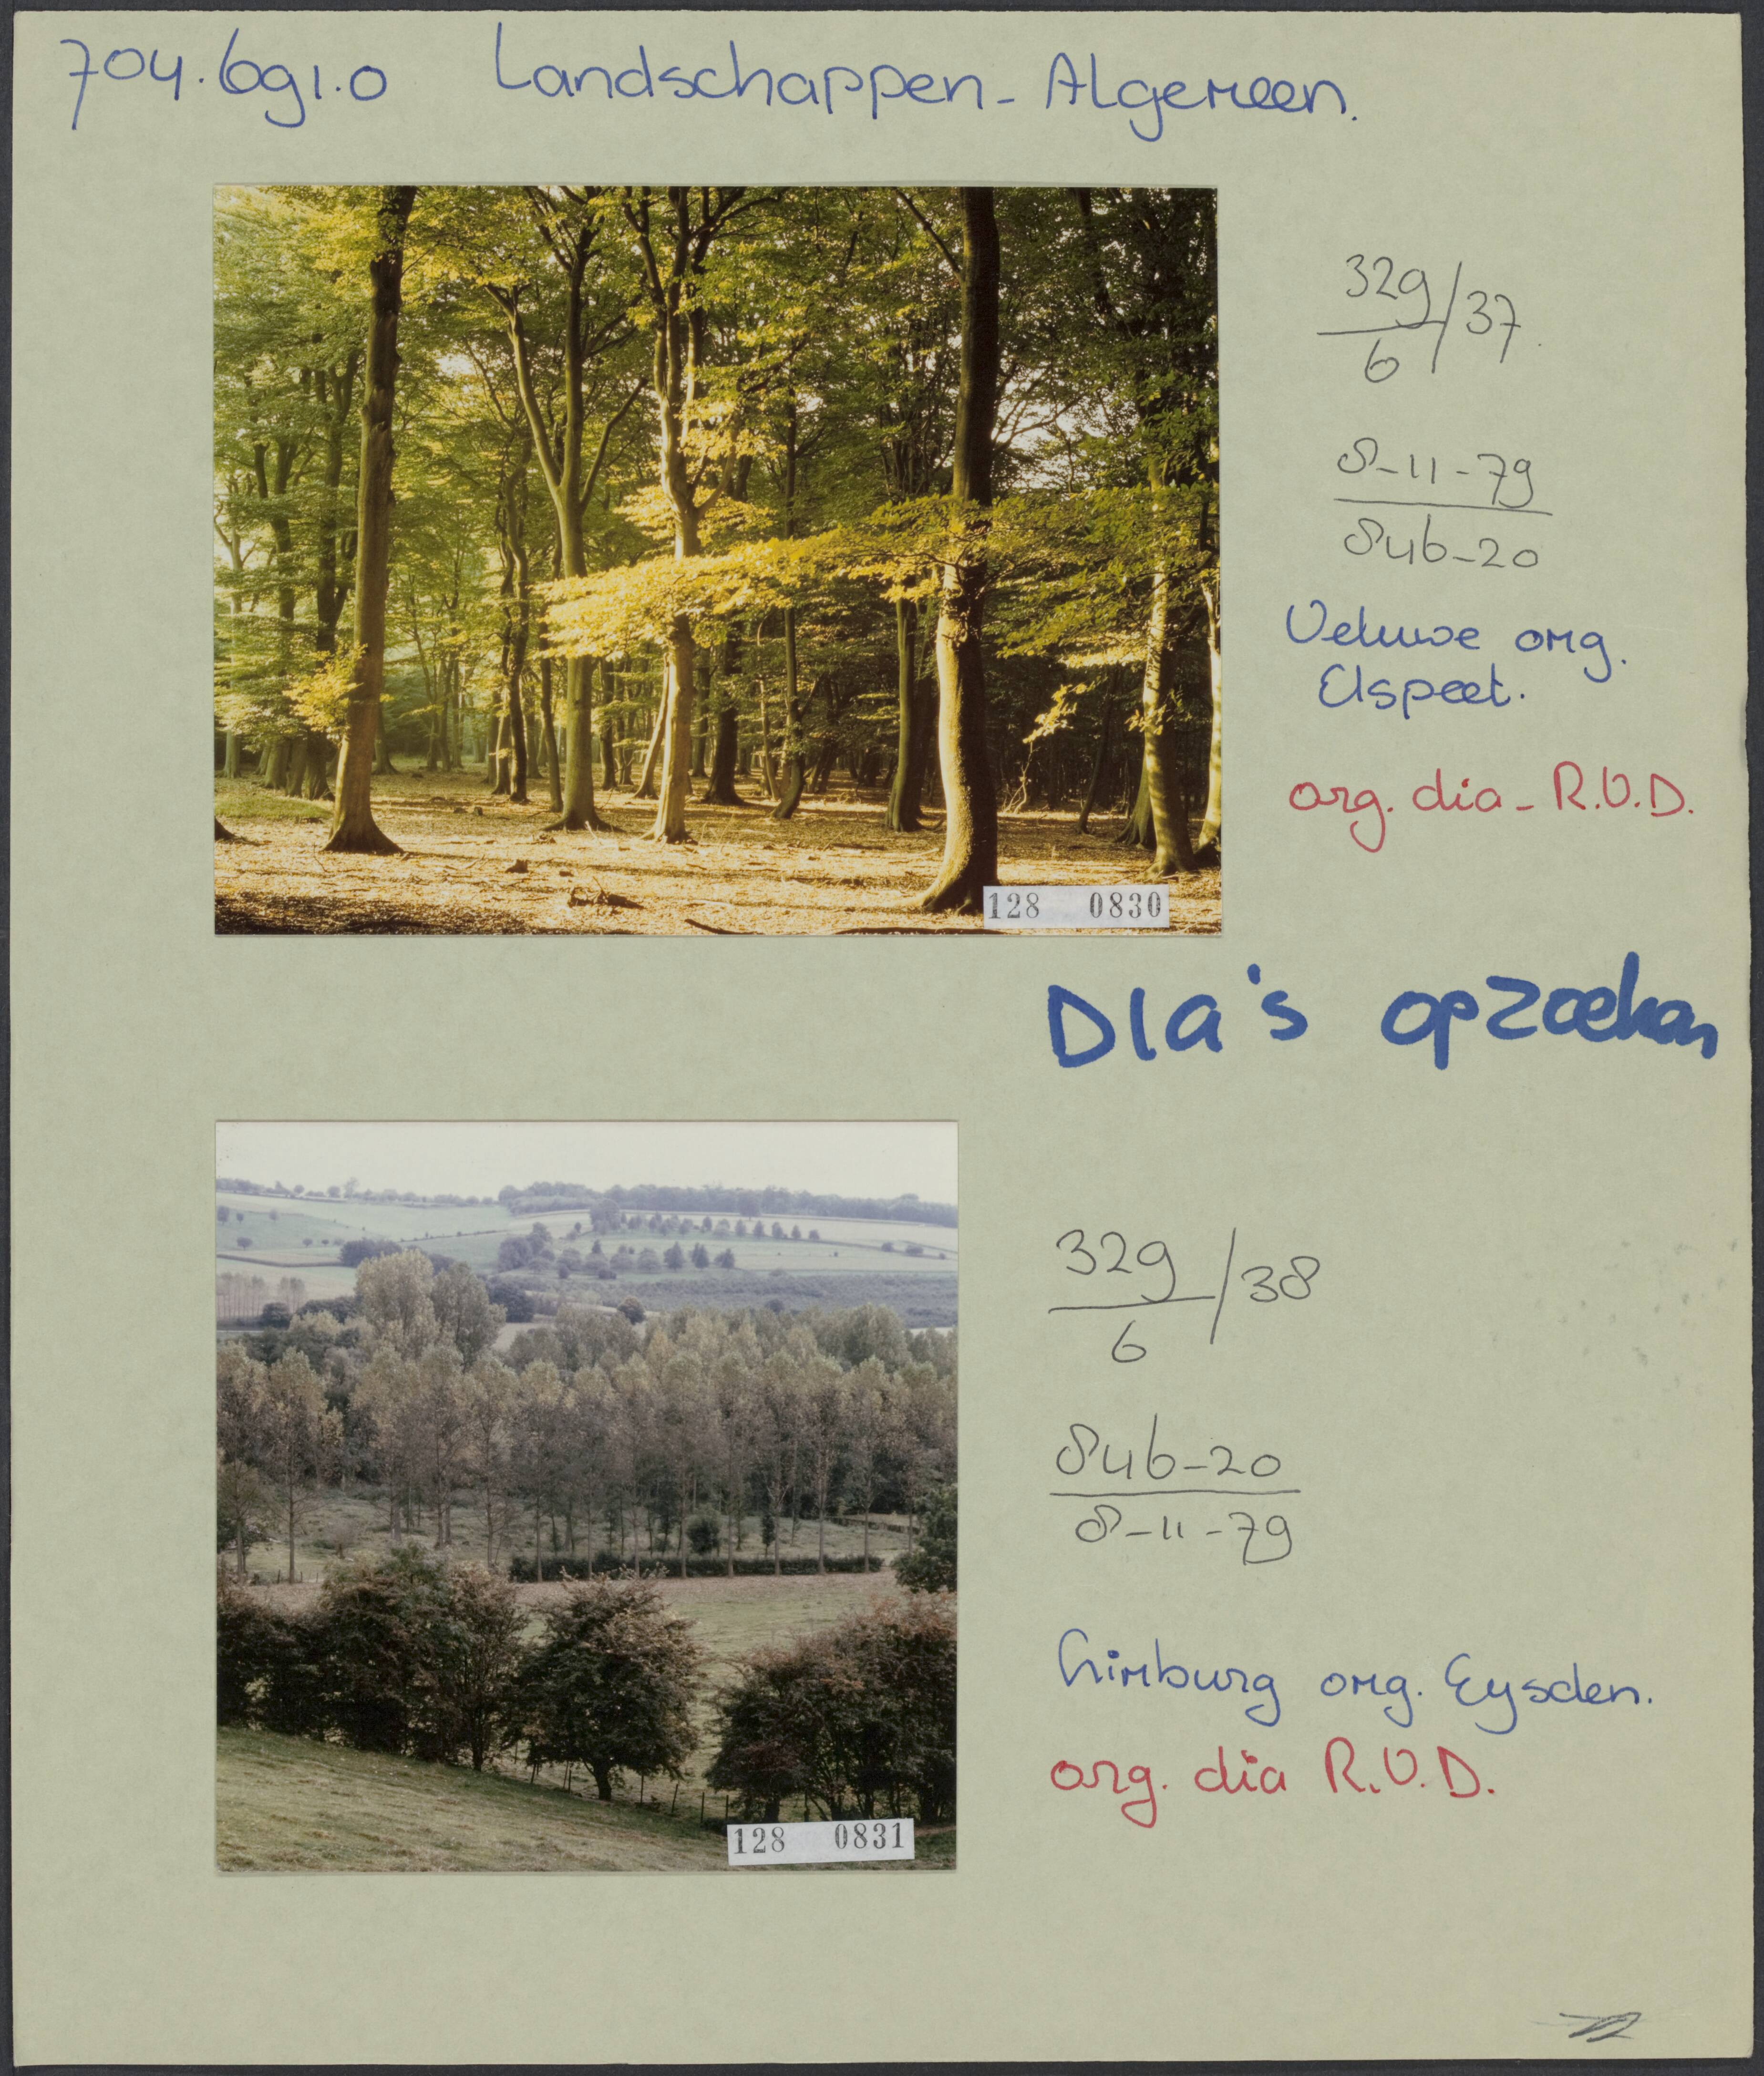 704.691.0 Landschappen - Algemeen.
329/37
6
8-11-79
846-20
Veluwe omg.
Elspeet.
org. dia - R.V.D.
128 0830
Dia's opzoeken
329/38
6
846-20
8-11-79
Limburg omg. Eysden.
org. dia R.V.D.
128 0831